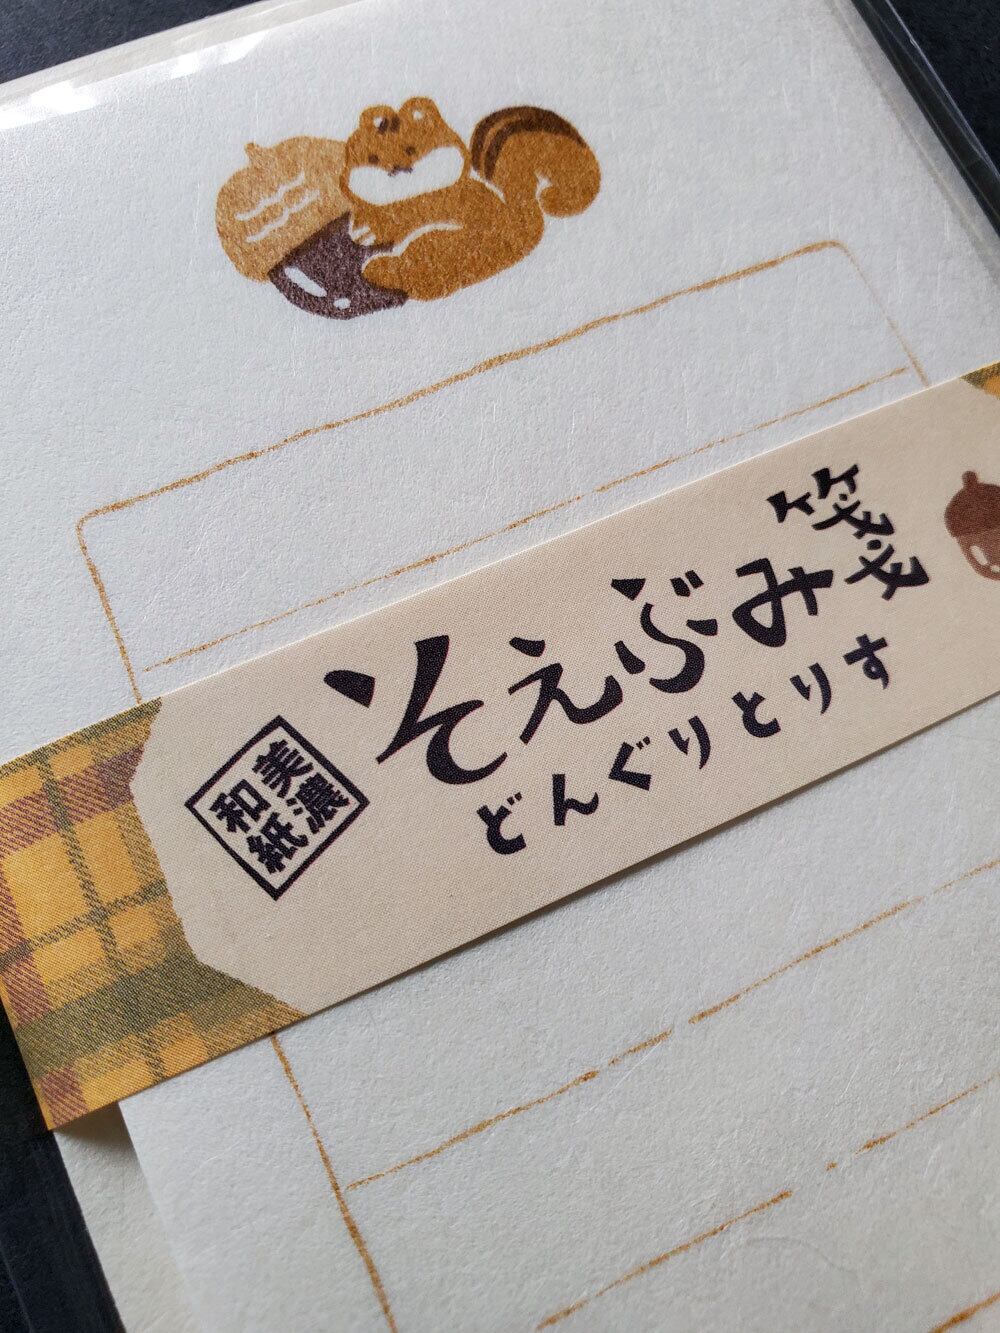 そえぶみ箋
どんぐりとりす
美濃
和紙